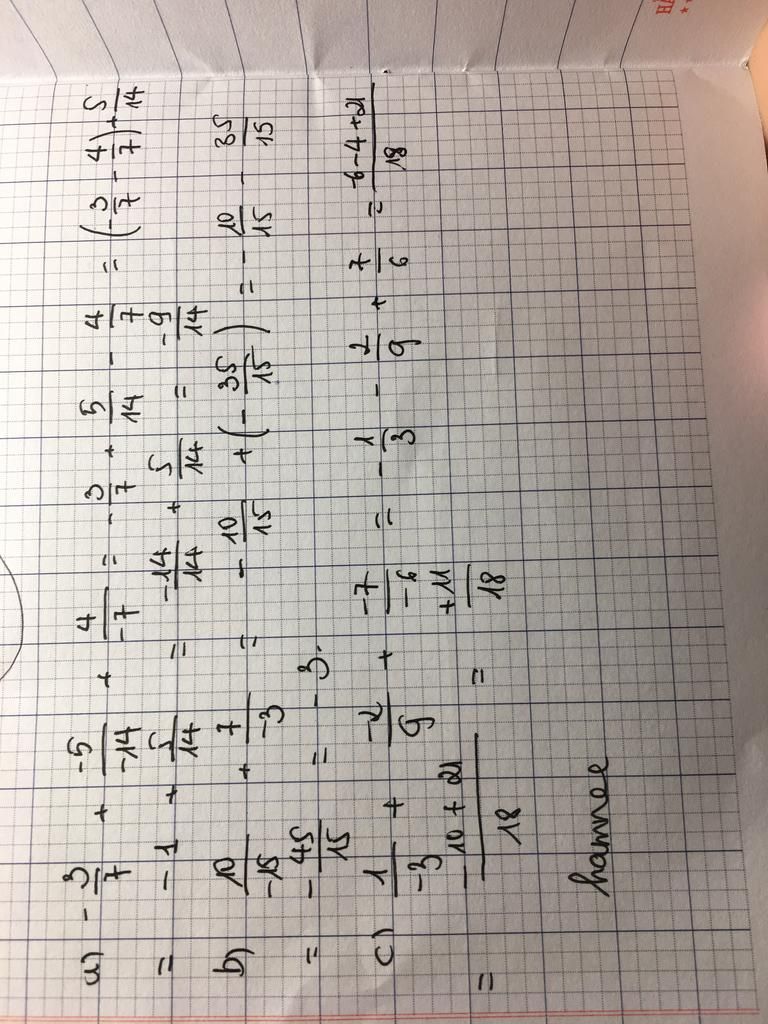 a) -3/7 + -5/-14 + 4/-7 = -3/7 + 5/14 - 4/7 = (-3/7 - 4/7) + 5/14
= -1 + 5/14 = -14/14 + 5/14 = -9/14
b) 10/-15 + 7/-3 = -10/15 + (-35/15) = -10/15 - 35/15
= -45/15 = -3.
c) 1/-3 + -2/9 + -7/-6 = -1/3 - 2/9 + 7/6 = -6-4+21/18
= -10+21/18 = +11/18